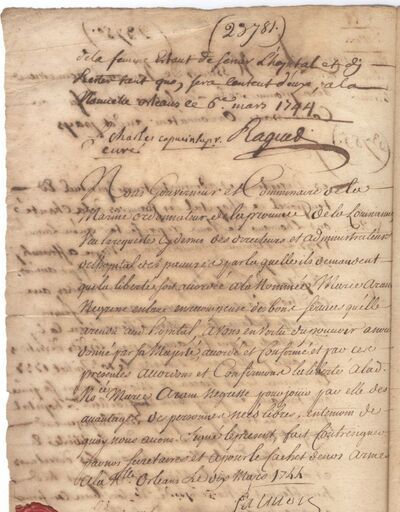 (23781.)
de la femme Estant de Servir L'hopital et dy
Rester tant que sera content d'eux, a la
Nouvelle orleans ce 6e mars 1744
Charles capucin supr.
curé
Raguet
Nous Gouverneur et Commissaire de la
Marine ordonnateur de la province de la Louisianne
Vu la requeste cy dessus des directeurs et administrateurs
de l'hopital des pauvres par laquelle ils demandent
que la liberté soit accordé a la Nommée Marie Aram
Negresse esclave en recompense des bons services quelle
a rendu aud hopital, avons en vertu du pouvoir a nous
donné par sa Majesté accordé et Confirmé et par ces
presentes Accordons et Confirmons la liberté a lad.
Nee. Marie Aram Negresse pour jouir par elle des
avantages des personnes nées libres, en temoin de
quoy nous avons signé le present, fait Contresigner
par nos secretaires et apposer le Cachet de nos Armes
a la Nlle Orleans le dix Mars 1744